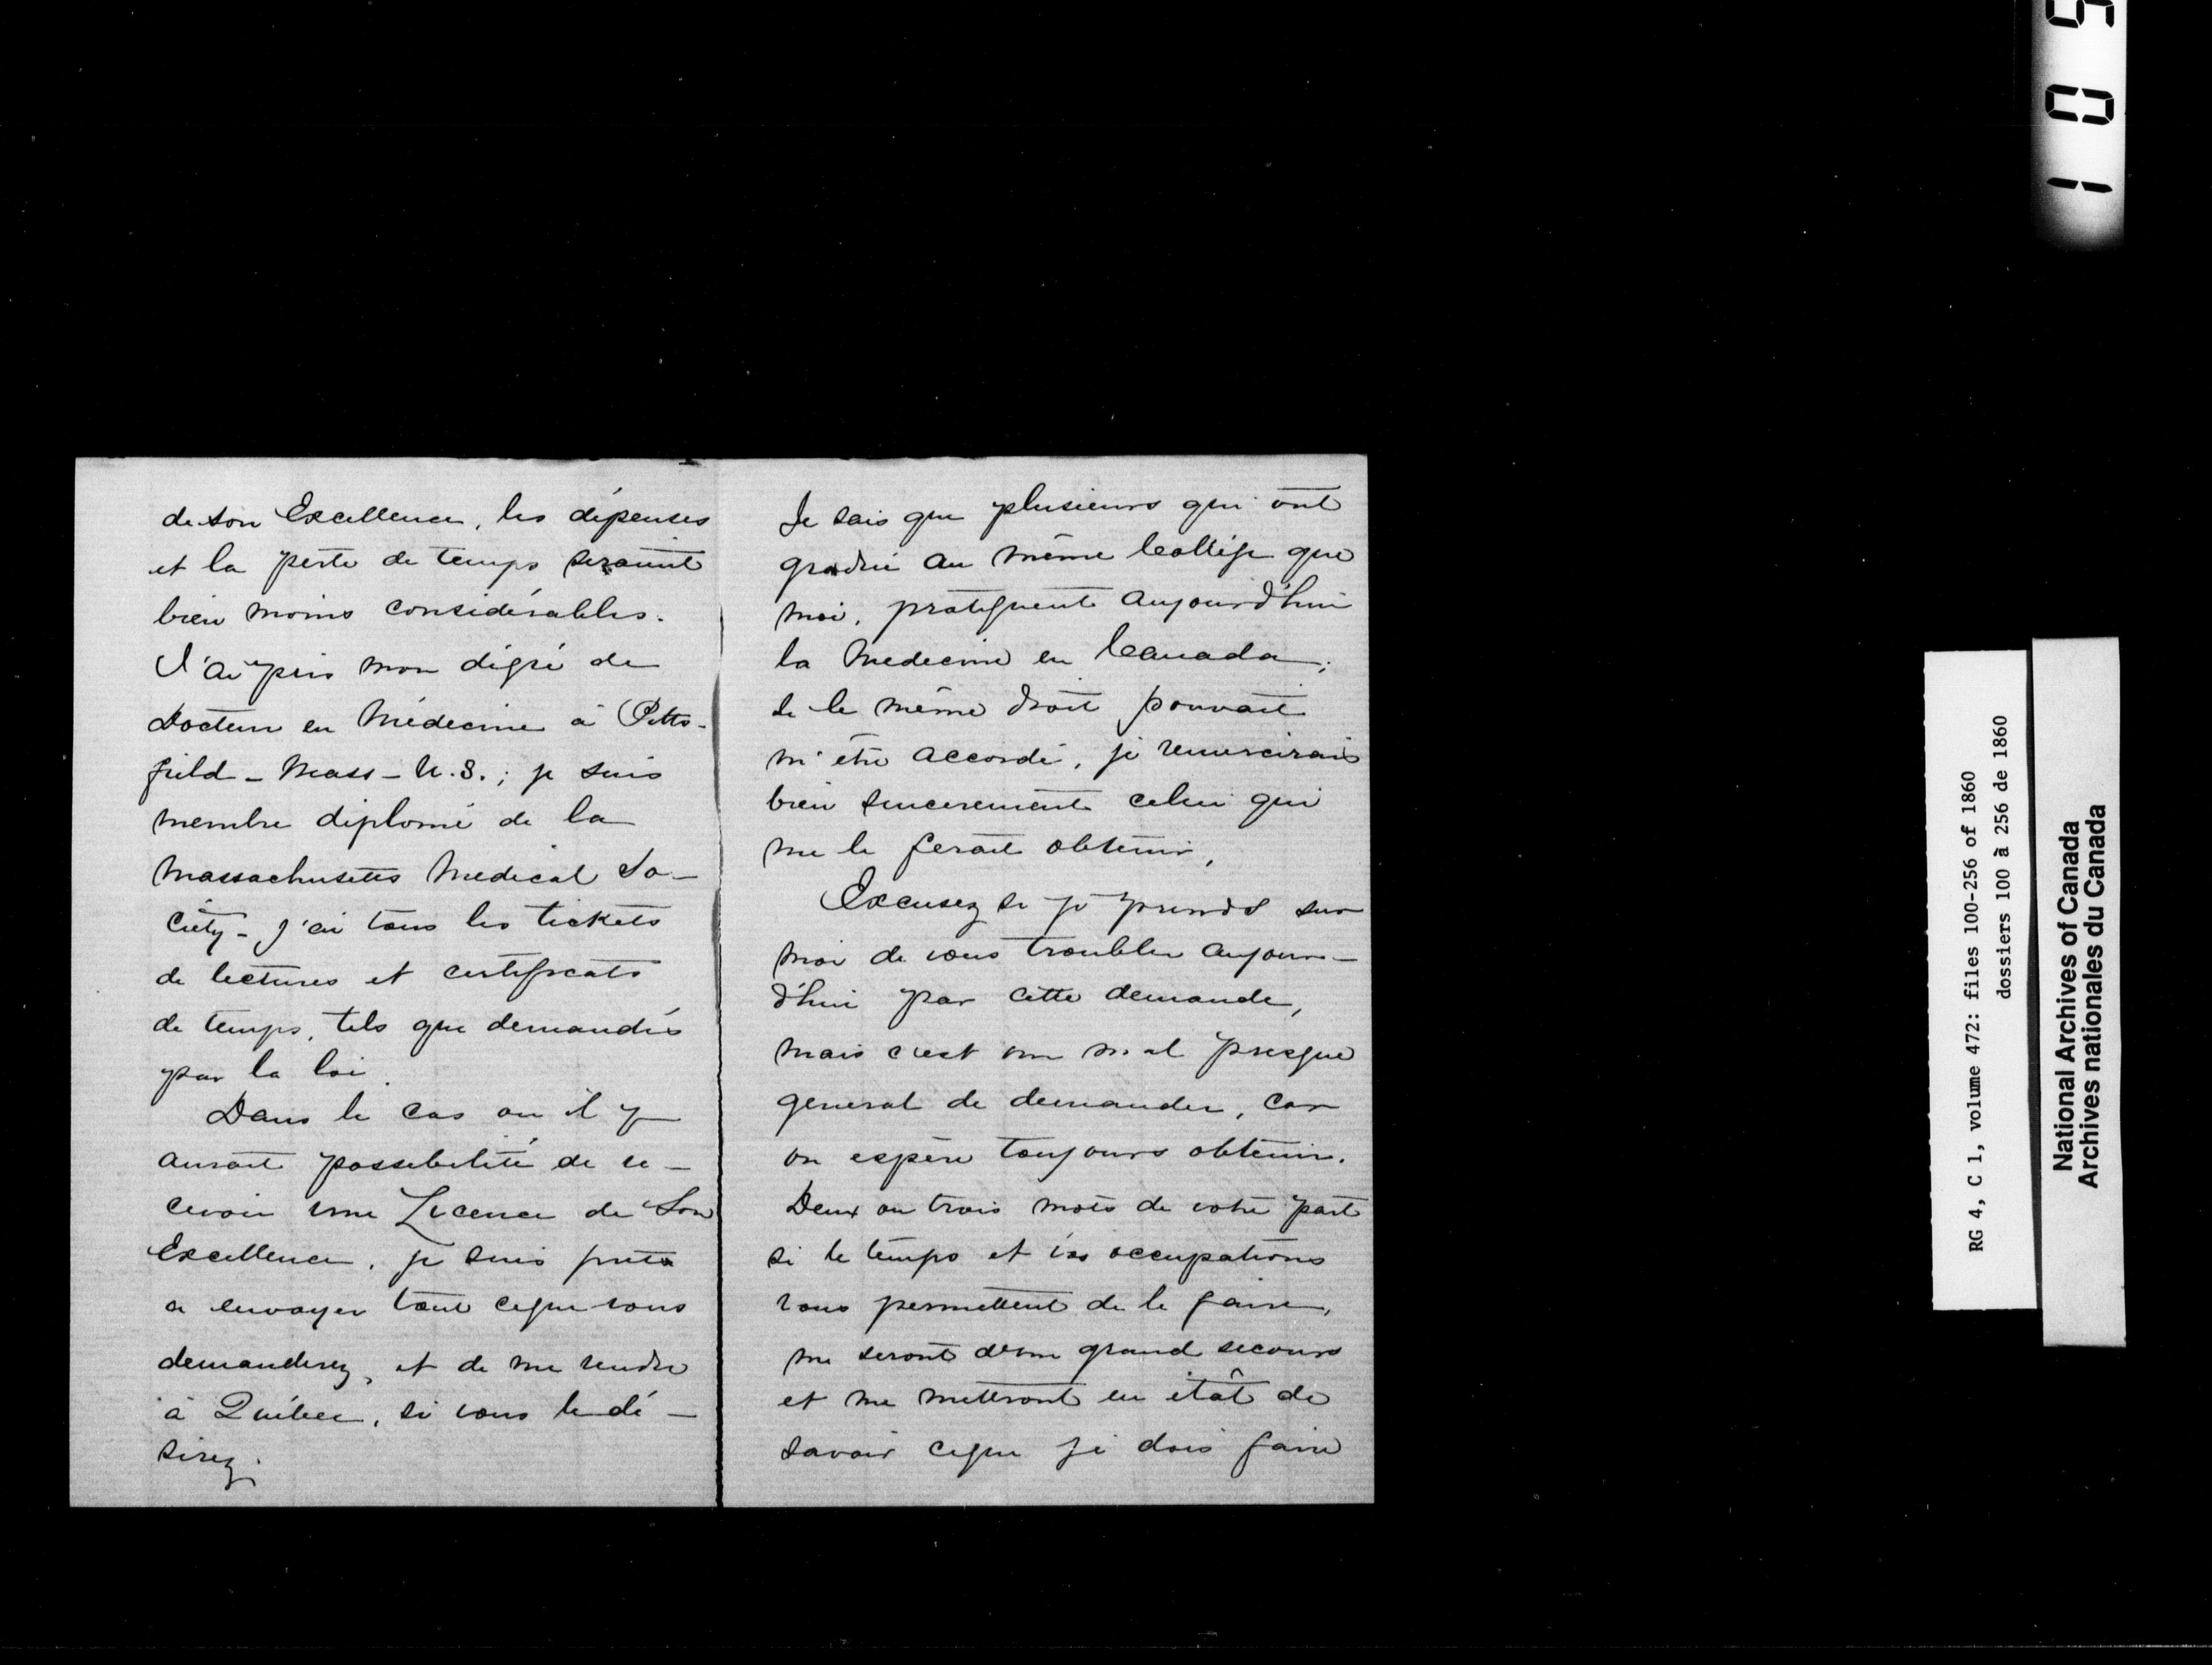 de son Excellence, les dépenses
et la perte de temps seraient
bien moins considérables.
J'ai pris mon dégré de
Docteur en Médecine à Pitts-
field - Mass - U.S.; je suis
membre diplomé de la
Massachusetts Medical So-
ciety - J'ai tous les tickets
de lectures et certificats
de temps, tels que demandés
par la loi.
Dans le cas ou il y
aurait possibilité de re-
cevoir une Licence de Son
Excellence, je suis prets
a envoyer tout ceque vous
demanderez, et de me rendre
à Québec, si vous le dé-
sirez.
Je sais que plusieurs qui ont
gradué au même Collège que
moi, pratiquent aujourd'hui
la Medecine en Canada;
si le même droit pouvait
m'être accordé, je remercirais
bien sincerement celui qui
me le ferait obtenir,
Excusez si je prends sur
moi de vous troubler aujour-
d'hui par cette demande,
mais c'est un mal presque
general de demander, car
on espère toujours obtenir.
Deux ou trois mots de votre part
si le temps et vos occupations
vous permettent de le faire,
me seront d'un grand secours
et me mettront en état de
savoir ceque je dois faire
1 0 5
RG 4, C 1, volume 472: files 100-256 of 1860
dossiers 100 à 256 de 1860
National Archives of Canada
Archives nationales du Canada